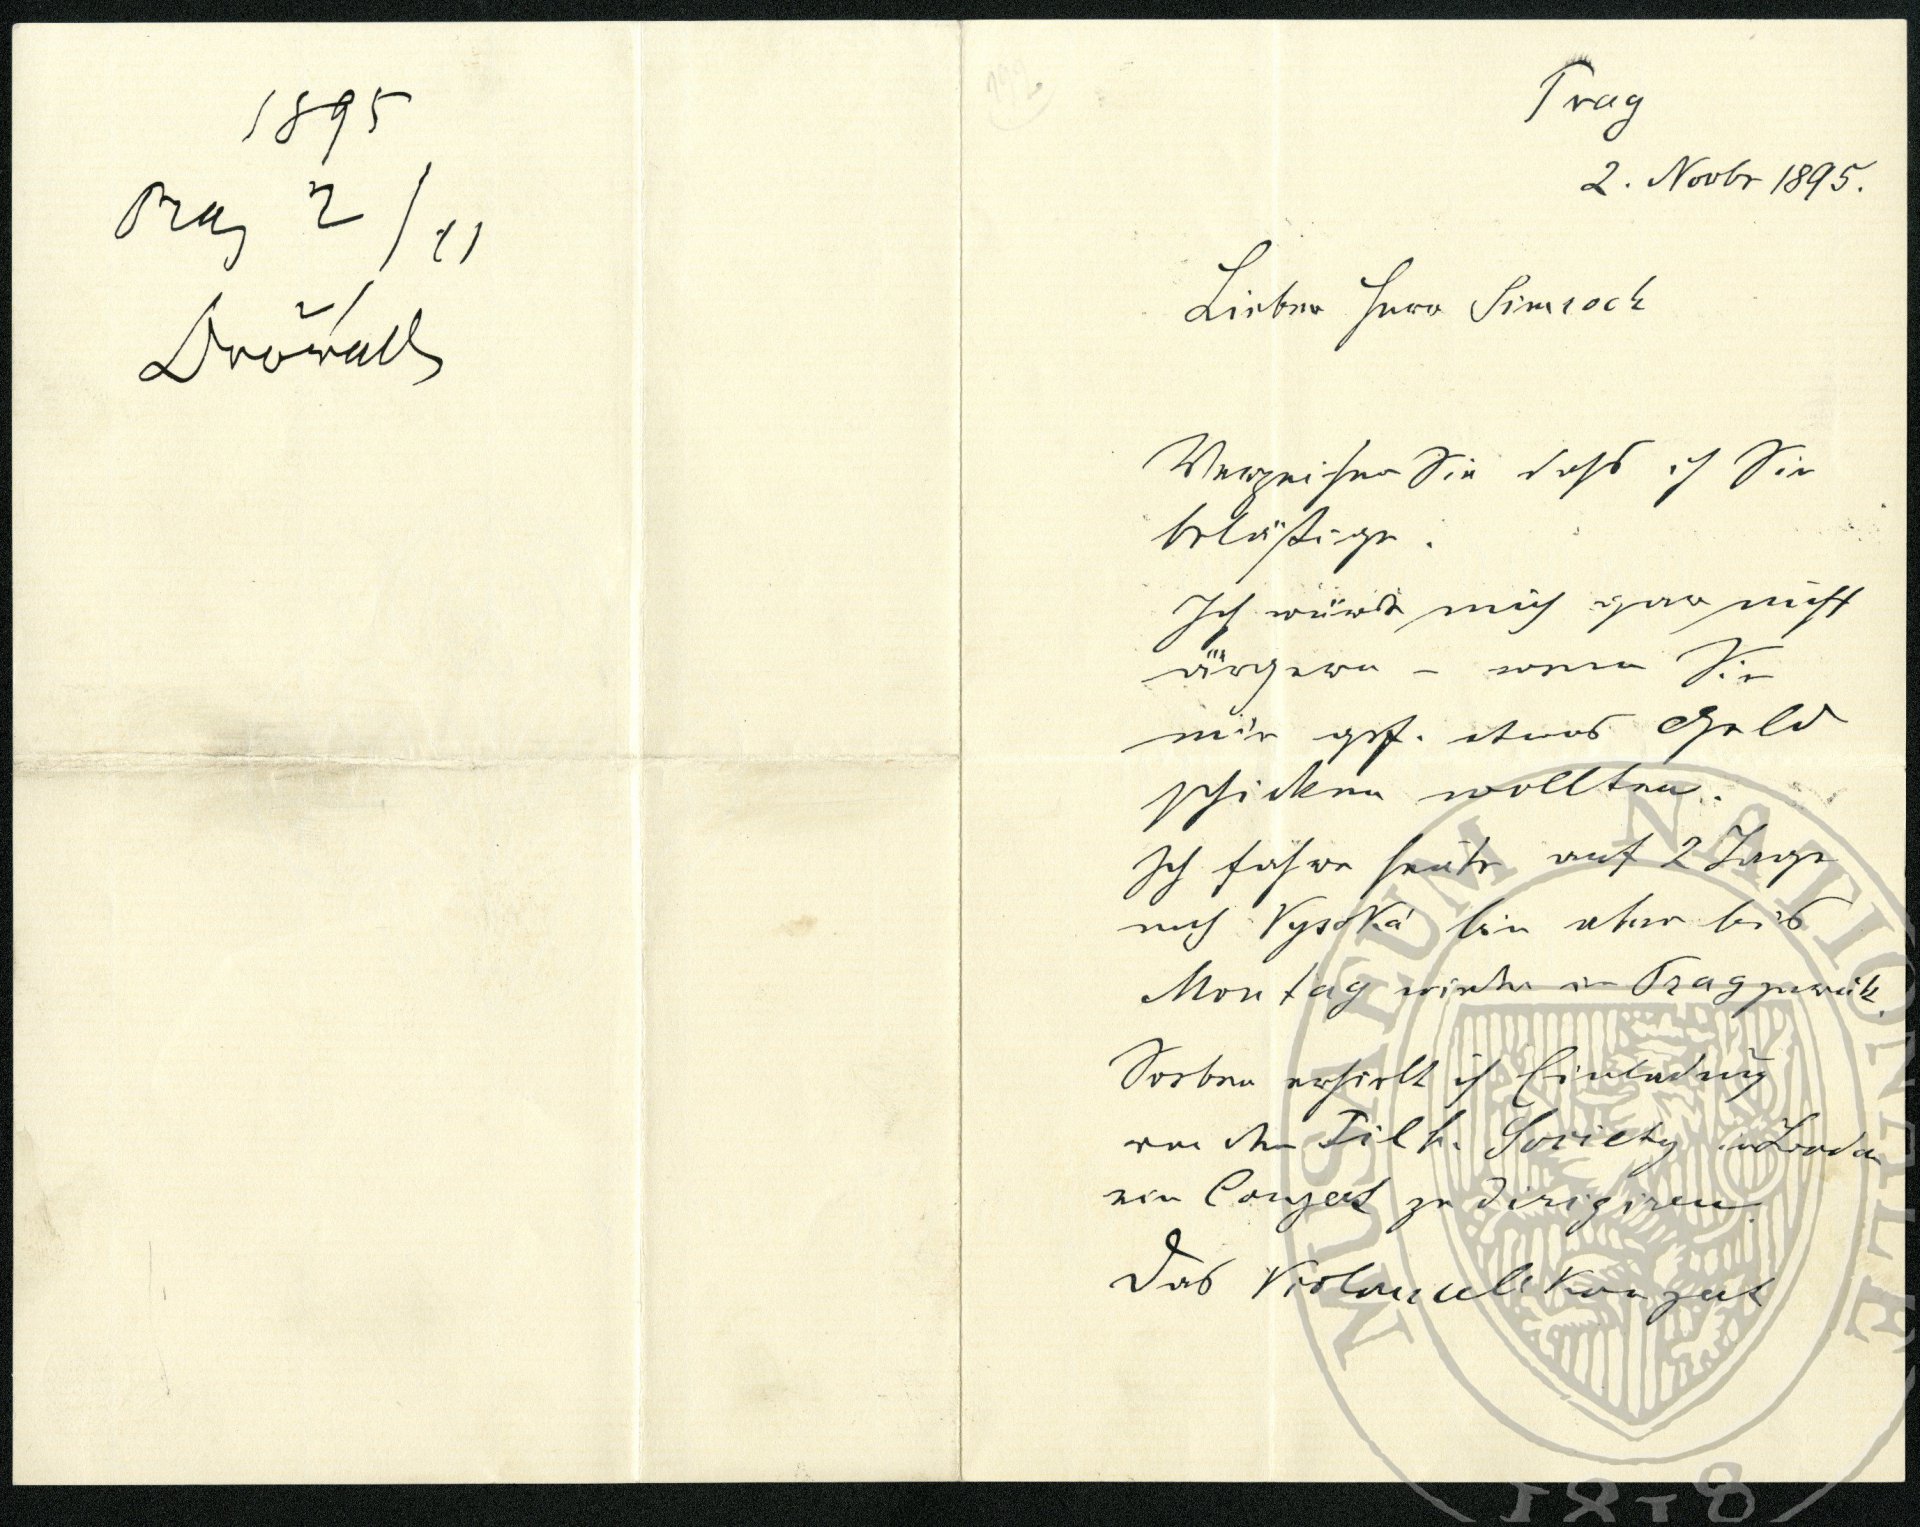 1895
Prag 2/11
Dvořák
Prag
2. Novbr 1895.
Lieber Herr Simrock
Verzeihen Sie dass ich Sie
belästige.
Ich würde mich gar nicht
ärgern – wenn Sie
mir gef. etwas Geld
schicken wollten.
Ich fahre heute auf 2 Tage
nach Vysoká bin aber bis
Montag wieder in Prag zurück.
Soeben erhielt ich Einladung
von der Filh. Society in London
ein Conzert zu dirigiren.
Das Violoncell Konzert
MUSAEUM NATIONALE
1818